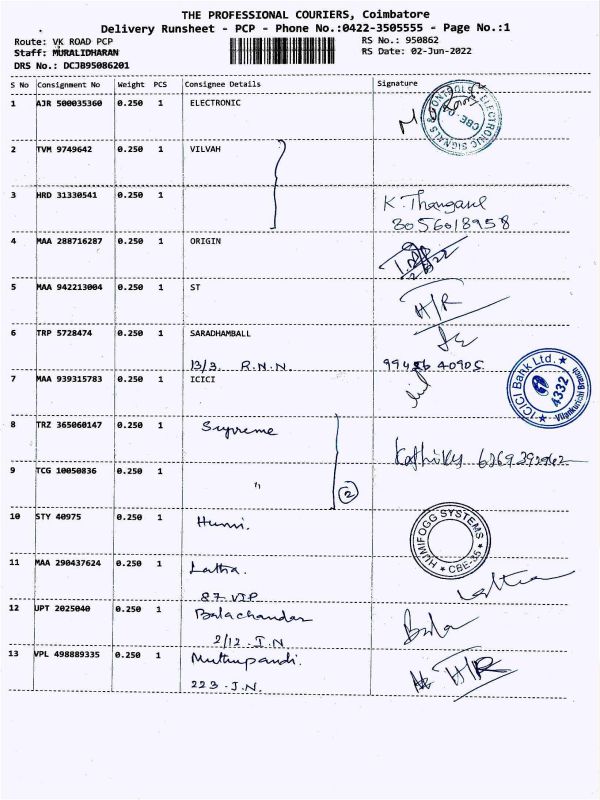 THE PROFESSIONAL COURIERS, Coimbatore
Delivery Runsheet - PCP - Phone No.:0422-3505555 - Page No.:1
Route: VK ROAD PCP RS No.: 950862
Staff: MURALIDHARAN RS Date: 02-Jun-2022
DRS No.: DCJB95086201
S No Consignment No Weight PCS Consignee Details Signature
1 AJR 500035360 0.250 1 ELECTRONIC
ELECTRONIC SIGNALS & CONTROLS CBE
2 TVM 9749642 0.250 1 VILVAH
3 HRD 31330541 0.250 1 K. Thangavel
8056018958
4 MAA 288716287 0.250 1 ORIGIN
5 MAA 942213004 0.250 1 ST H/R
6 TRP 5728474 0.250 1 SARADHAMBALL
13/3. R.N.N. 99436 40905
7 MAA 939315783 0.250 1 ICICI
ICICI Bank Ltd. 4332 Vilankurichi Branch
8 TRZ 365060147 0.250 1 Supreme
9 TCG 10050836 0.250 1 "
2
10 STY 40975 0.250 1 Humi.
HUMIFOGG SYSTEMS CBE-35
11 MAA 290437624 0.250 1 Latha.
87. VIP Latha
12 UPT 2025040 0.250 1 Balachandar Bala
2/12 . I.N
13 VPL 498889335 0.250 1 Muthupandi. H/R
223 . J.N.